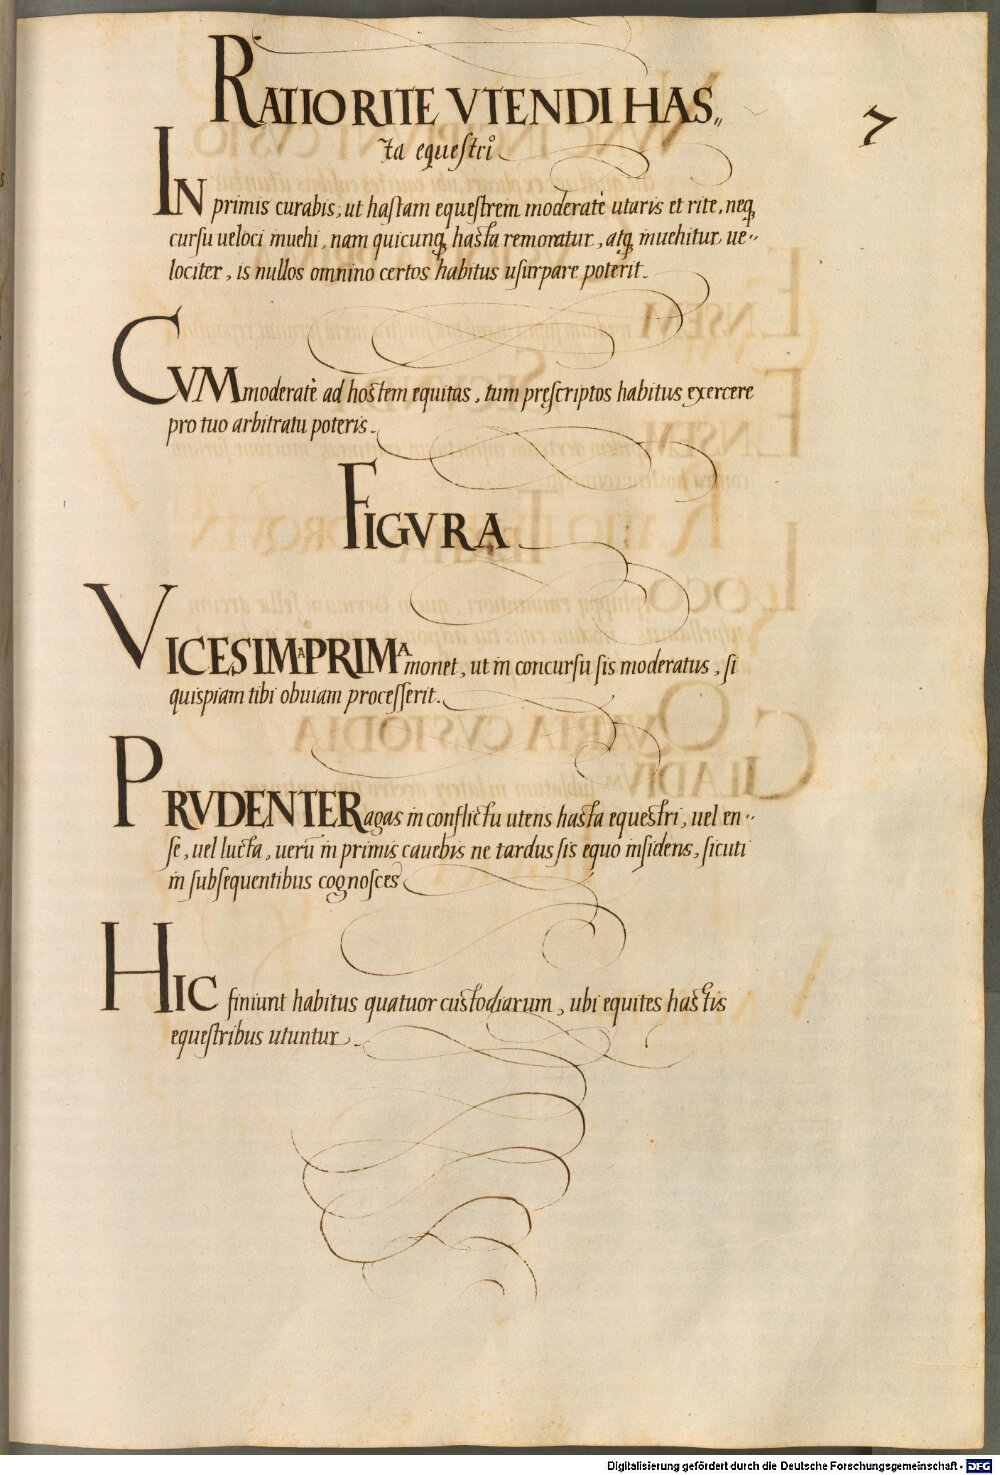 RATIO RITE VTENDI HAS„
ta equestri
7
IN primis curabis, ut hastam equestrem moderate utaris et rite, neq;
cursu ueloci inuehi, nam quicunq; hasta remoratur, atq; inuehitur ue„
lociter, is nullos omnino certos habitus usurpare poterit.
CVM moderatè ad hostem equitas, tum pręscriptos habitus exercere
pro tuo arbitratu poteris.
FIGVRA
VICESIMA PRIMA monet, ut in concursu sis moderatus, si
quispiam tibi obuiam processerit.
PRVDENTER agas in conflictu utens hasta equestri, uel en„
se, uel lucta, uerũ in primis cauebis ne tardus sis equo insidens, sicuti
in subsequentibus cognosces
HIC finiunt habitus quatuor custodiarum, ubi equites hastis
equestribus utuntur.
Digitalisierung gefördert durch die Deutsche Forschungsgemeinschaft - DFG